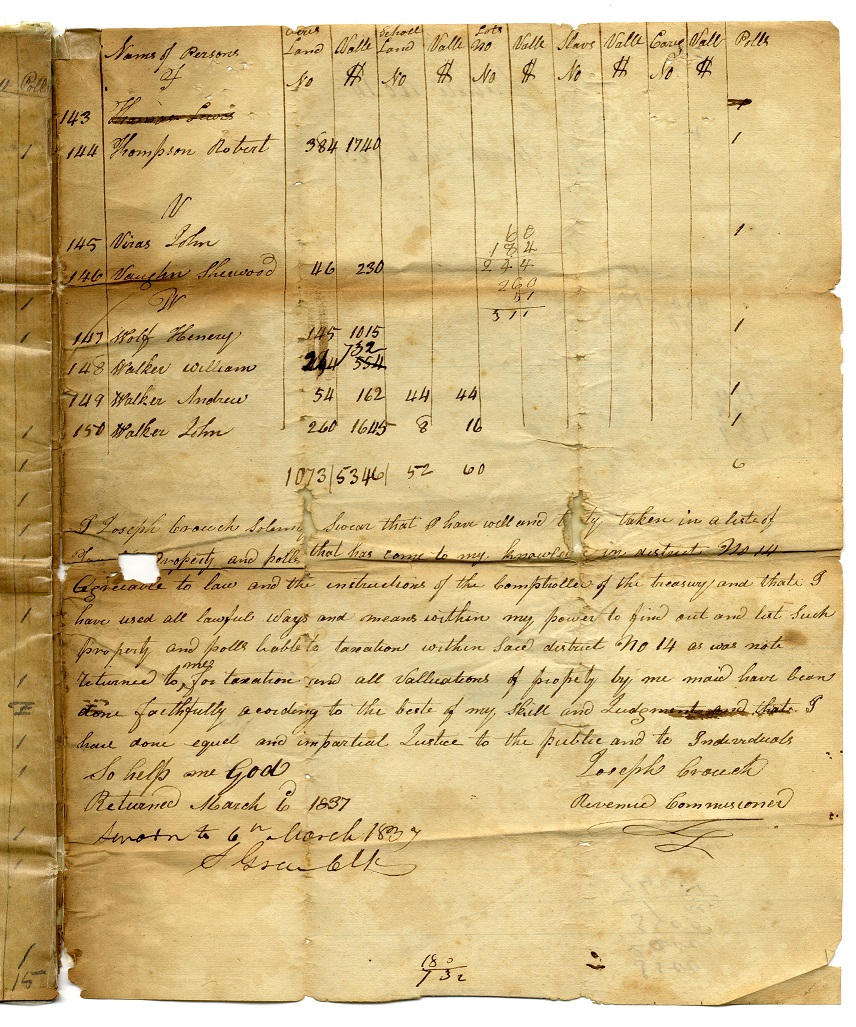 Polls
Nams of Persons Acres Land Valle School Land Valle Lots No Valle Slavs Valle Carg Vall Polls
T No $ No $ No $ No $ No $
143 Lewis 1
144 Thompson Robert 384 1740 1
V
145 Viras John 1
146 Vaughn Sherwood 46 230
60
184
244
260
51
311
W
147 Wolf Henery 145 1015 1
732
148 Walker William 554
149 Walker Andrew 54 162 44 44 1
150 Walker John 260 1645 8 16 1
1073 5346 52 60 6
I Joseph Crouch Solemny Swear that I have will and taken in a liste of
Property and polls that has come to my in district No 14
Agreeable to law and the instructions of the Comptroller of the treasury and thate I
have used all lawful ways and means within my power to find out and list such
property and polls liable to taxation within said district No 14 as was note
returned to me for taxation and all Valluations of propety by me maid have been
done faithfully acording to the beste of my Skill and Judgment and thate I
have done equel and impartial Justice to the public and to Individuals
So help me God Joseph Crouch
Returned March 6 1837 Revenue Commisioner
Sworn to 6th March 1837
S Clk
18
732
1
1
1
1
1
1
1
1
1
1
1
1
15